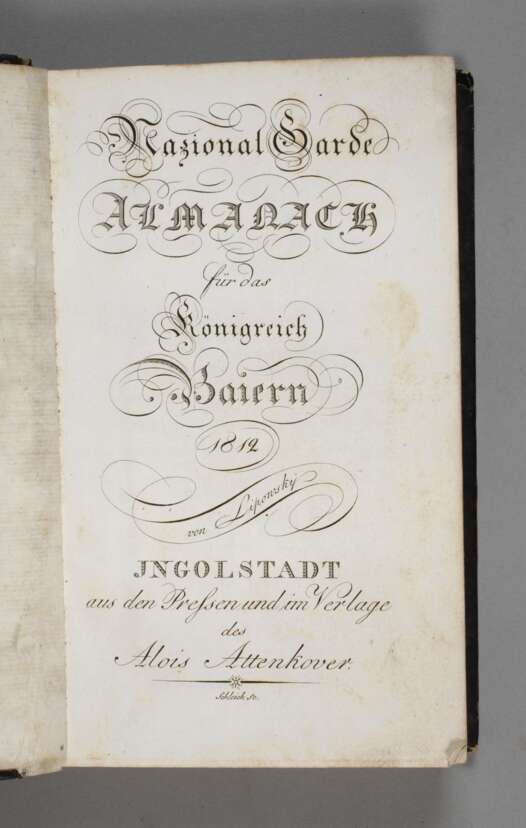 Nazional Garde
ALMANACH
für das
Königreich
Baiern
1812
von Lipowsky
JNGOLSTADT
aus den Preſsen und im Verlage
des
Alois Attenkover.
Schleich. Sc.